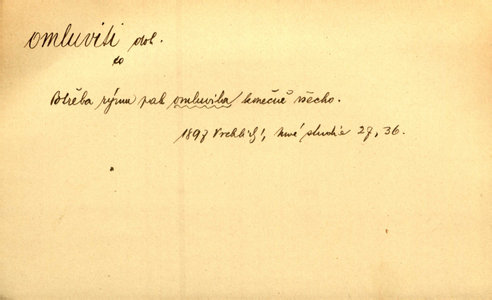 omluviti dok.
co
Potřeba rýmu pak omluvila konečně všecko.
1897 Vrchlický, Nové studie 27, 36.